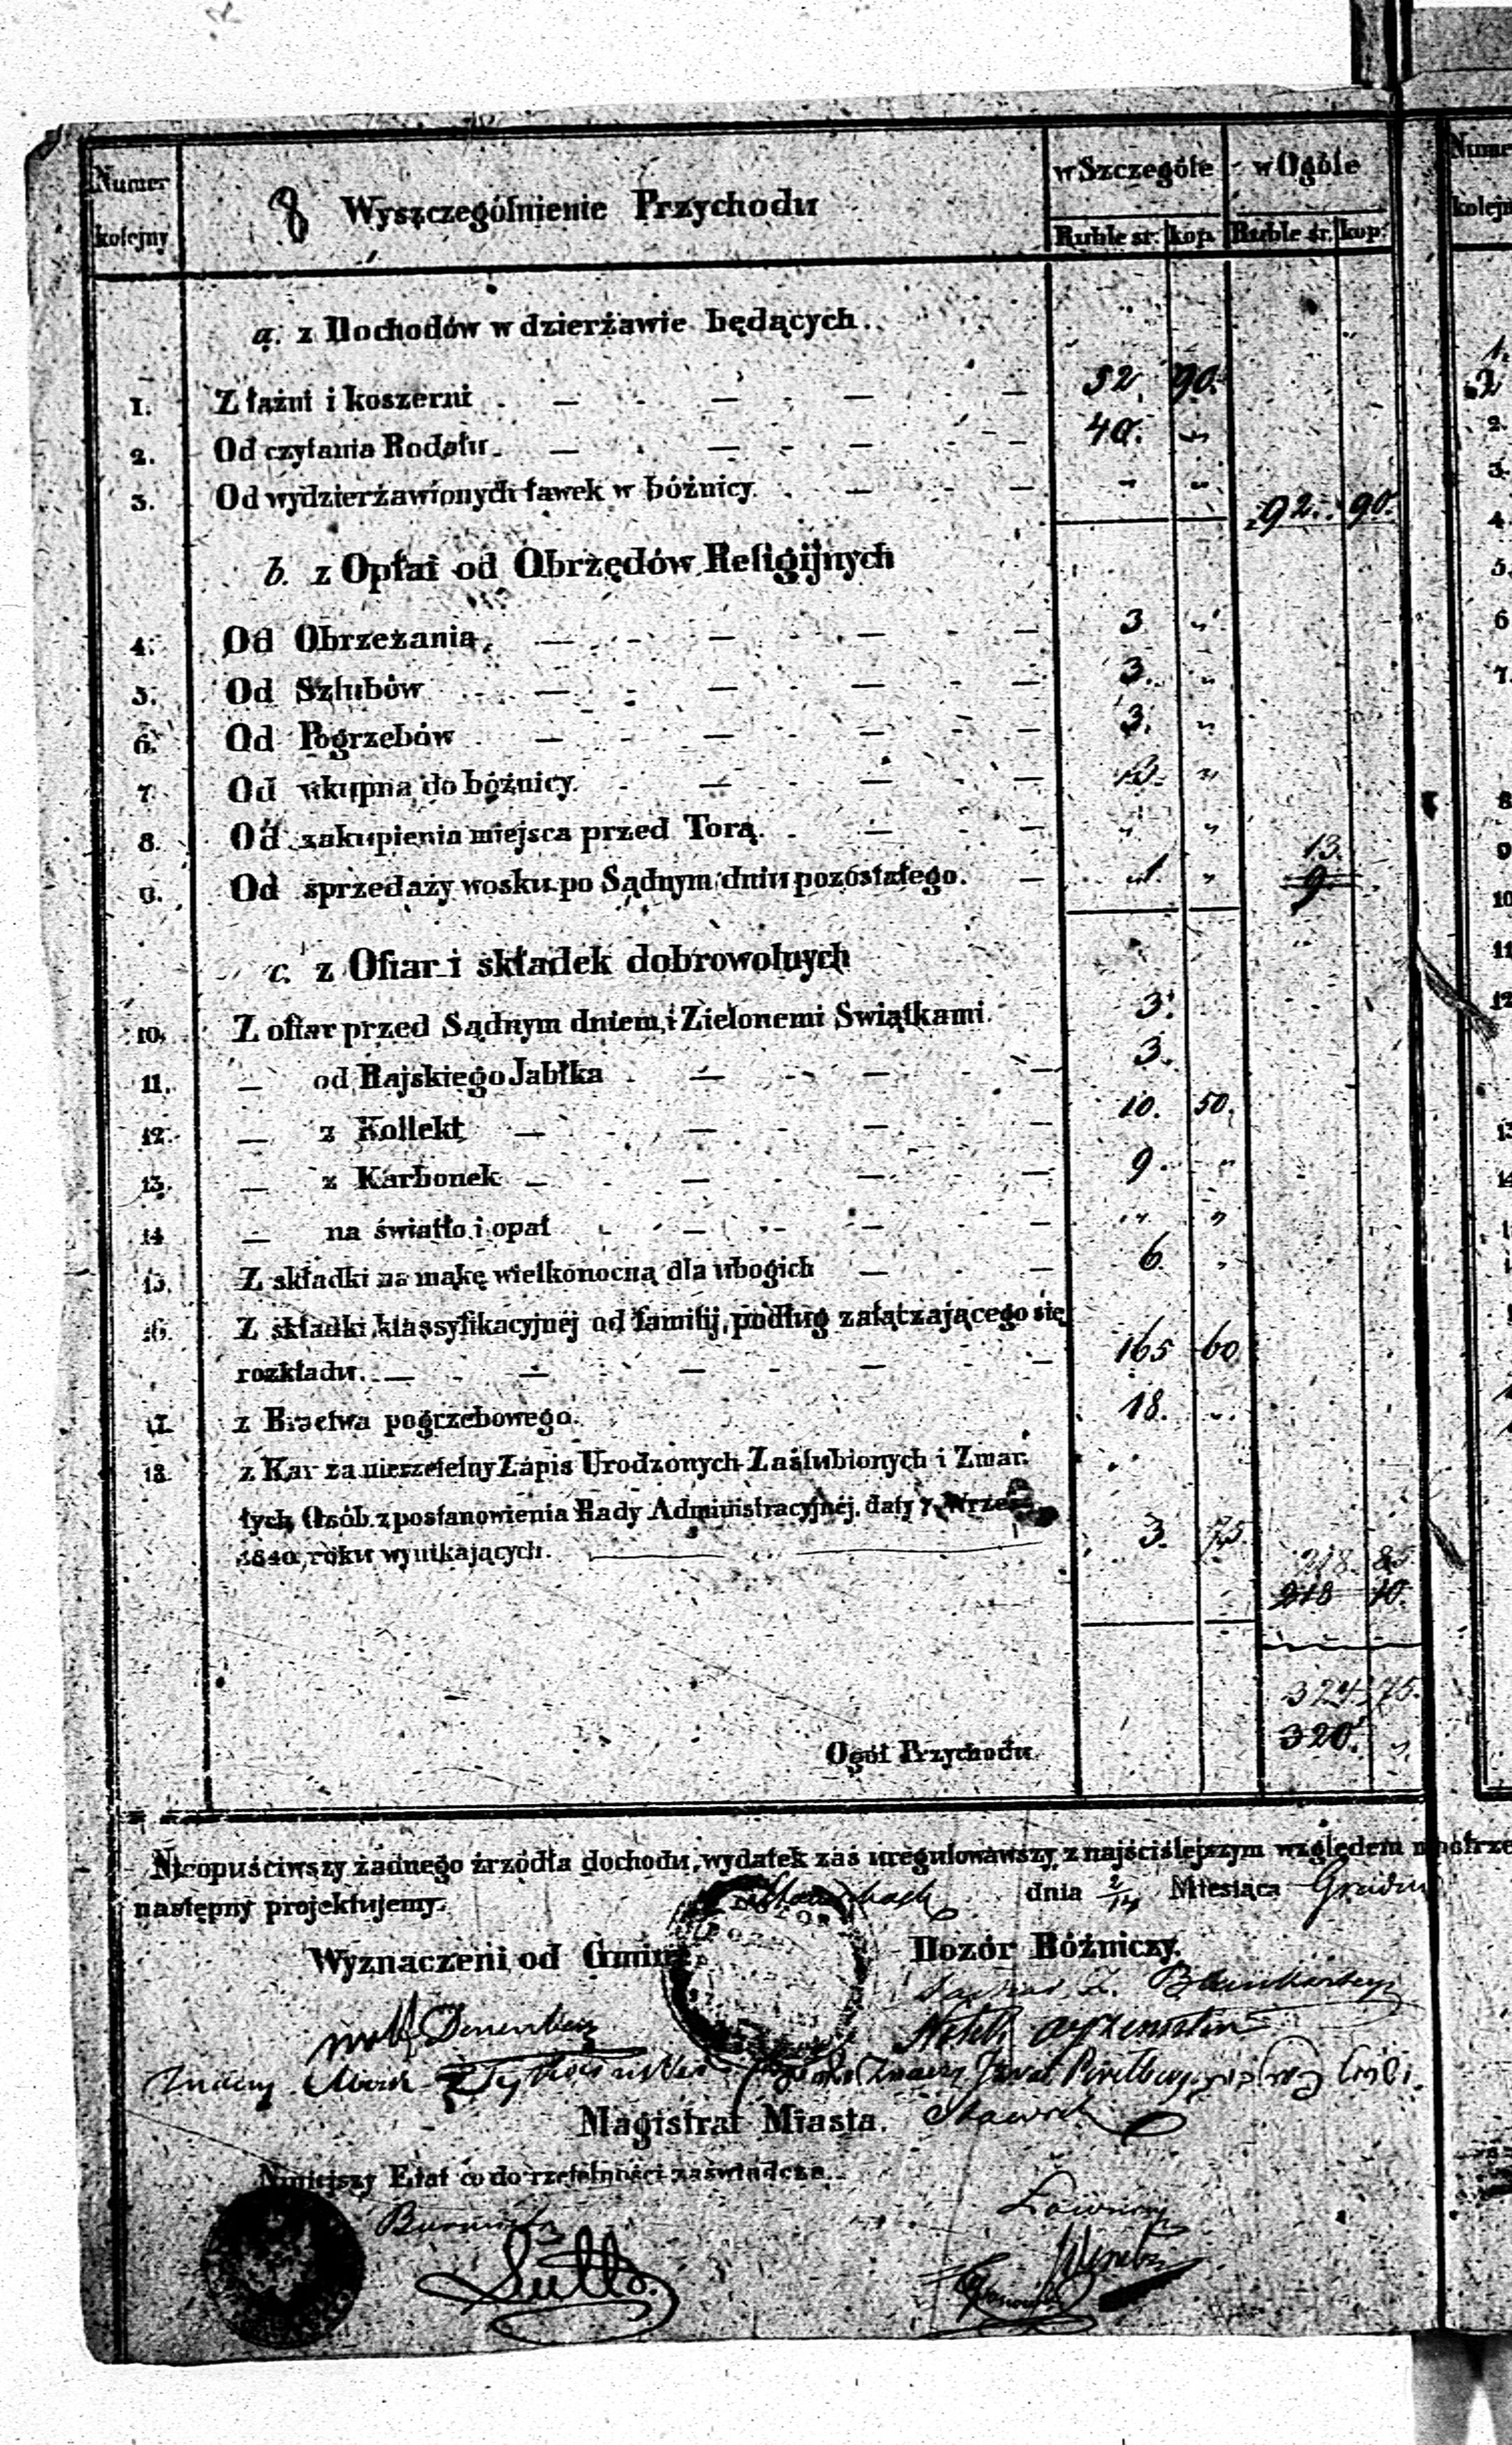 Numer kolejny
8 Wyszczególnienie Przychodu
w Szczególe w Ogóle
Ruble sr. kop. Ruble sr. kop.
a. z Dochodów w dzierżawie będących.
1. Z łaźni i koszerni 52. 90.
2. Od czytania Rodału. 40. "
3. Od wydzierżawionych ławek w bóżnicy. " " 92. 90.
b. z Opłat od Obrzędów Religijnych
4. Od Obrzezania, 3 "
5. Od Szlubów 3. "
6. Od Pogrzebów 3. "
7. Od wkupna do bóżnicy. 3. "
8. Od zakupienia miejsca przed Torą. " "
13.
9. Od sprzedaży wosku po Sądnym dniu pozostałego. 1. " 9
c. z Ofiar i składek dobrowolnych
10. Z ofiar przed Sądnym dniem i Zielonemi Swiątkami. 3.
11. — od Rajskiego Jabłka 3.
12. — z Kollekt 10. 50.
13. — z Karbonek 9. "
14. — na światło i opał " "
15. Z składki na mąkę wielkonocną dla ubogich 6. "
16. Z składki klassyfikacyjnéj od familij, podług załączającego się
rozkładu. 165 60
17. z Bractwa pogrzebowego. 18. "
18. z Kar za nierzetelny Zapis Urodzonych Zaślubionych i Zmar-
łych Osób z postanowienia Rady Administracyjnéj. daty 7. Wrze
1840 roku wynikających. 3. 75.
218. 85
218 10.
324. 75.
Ogół Przychodu. 320. "
Nieopuściwszy żadnego źrzódła dochodu, wydatek zaś uregulowawszy z najściślejszym względem
następny projektujemy. dnia 2/14 Miesiąca Grudnia
Wyznaczeni od Gminy. Dozór Bóżniczy.
Magistrat Miasta.
Niniejszy Etat co do rzetelności zaświadcza.
Burmistrz Ławnicy
Numer
kolejny
1.
2
2.
3.
4.
5.
6
7.
8
9
10
11
12
13
14